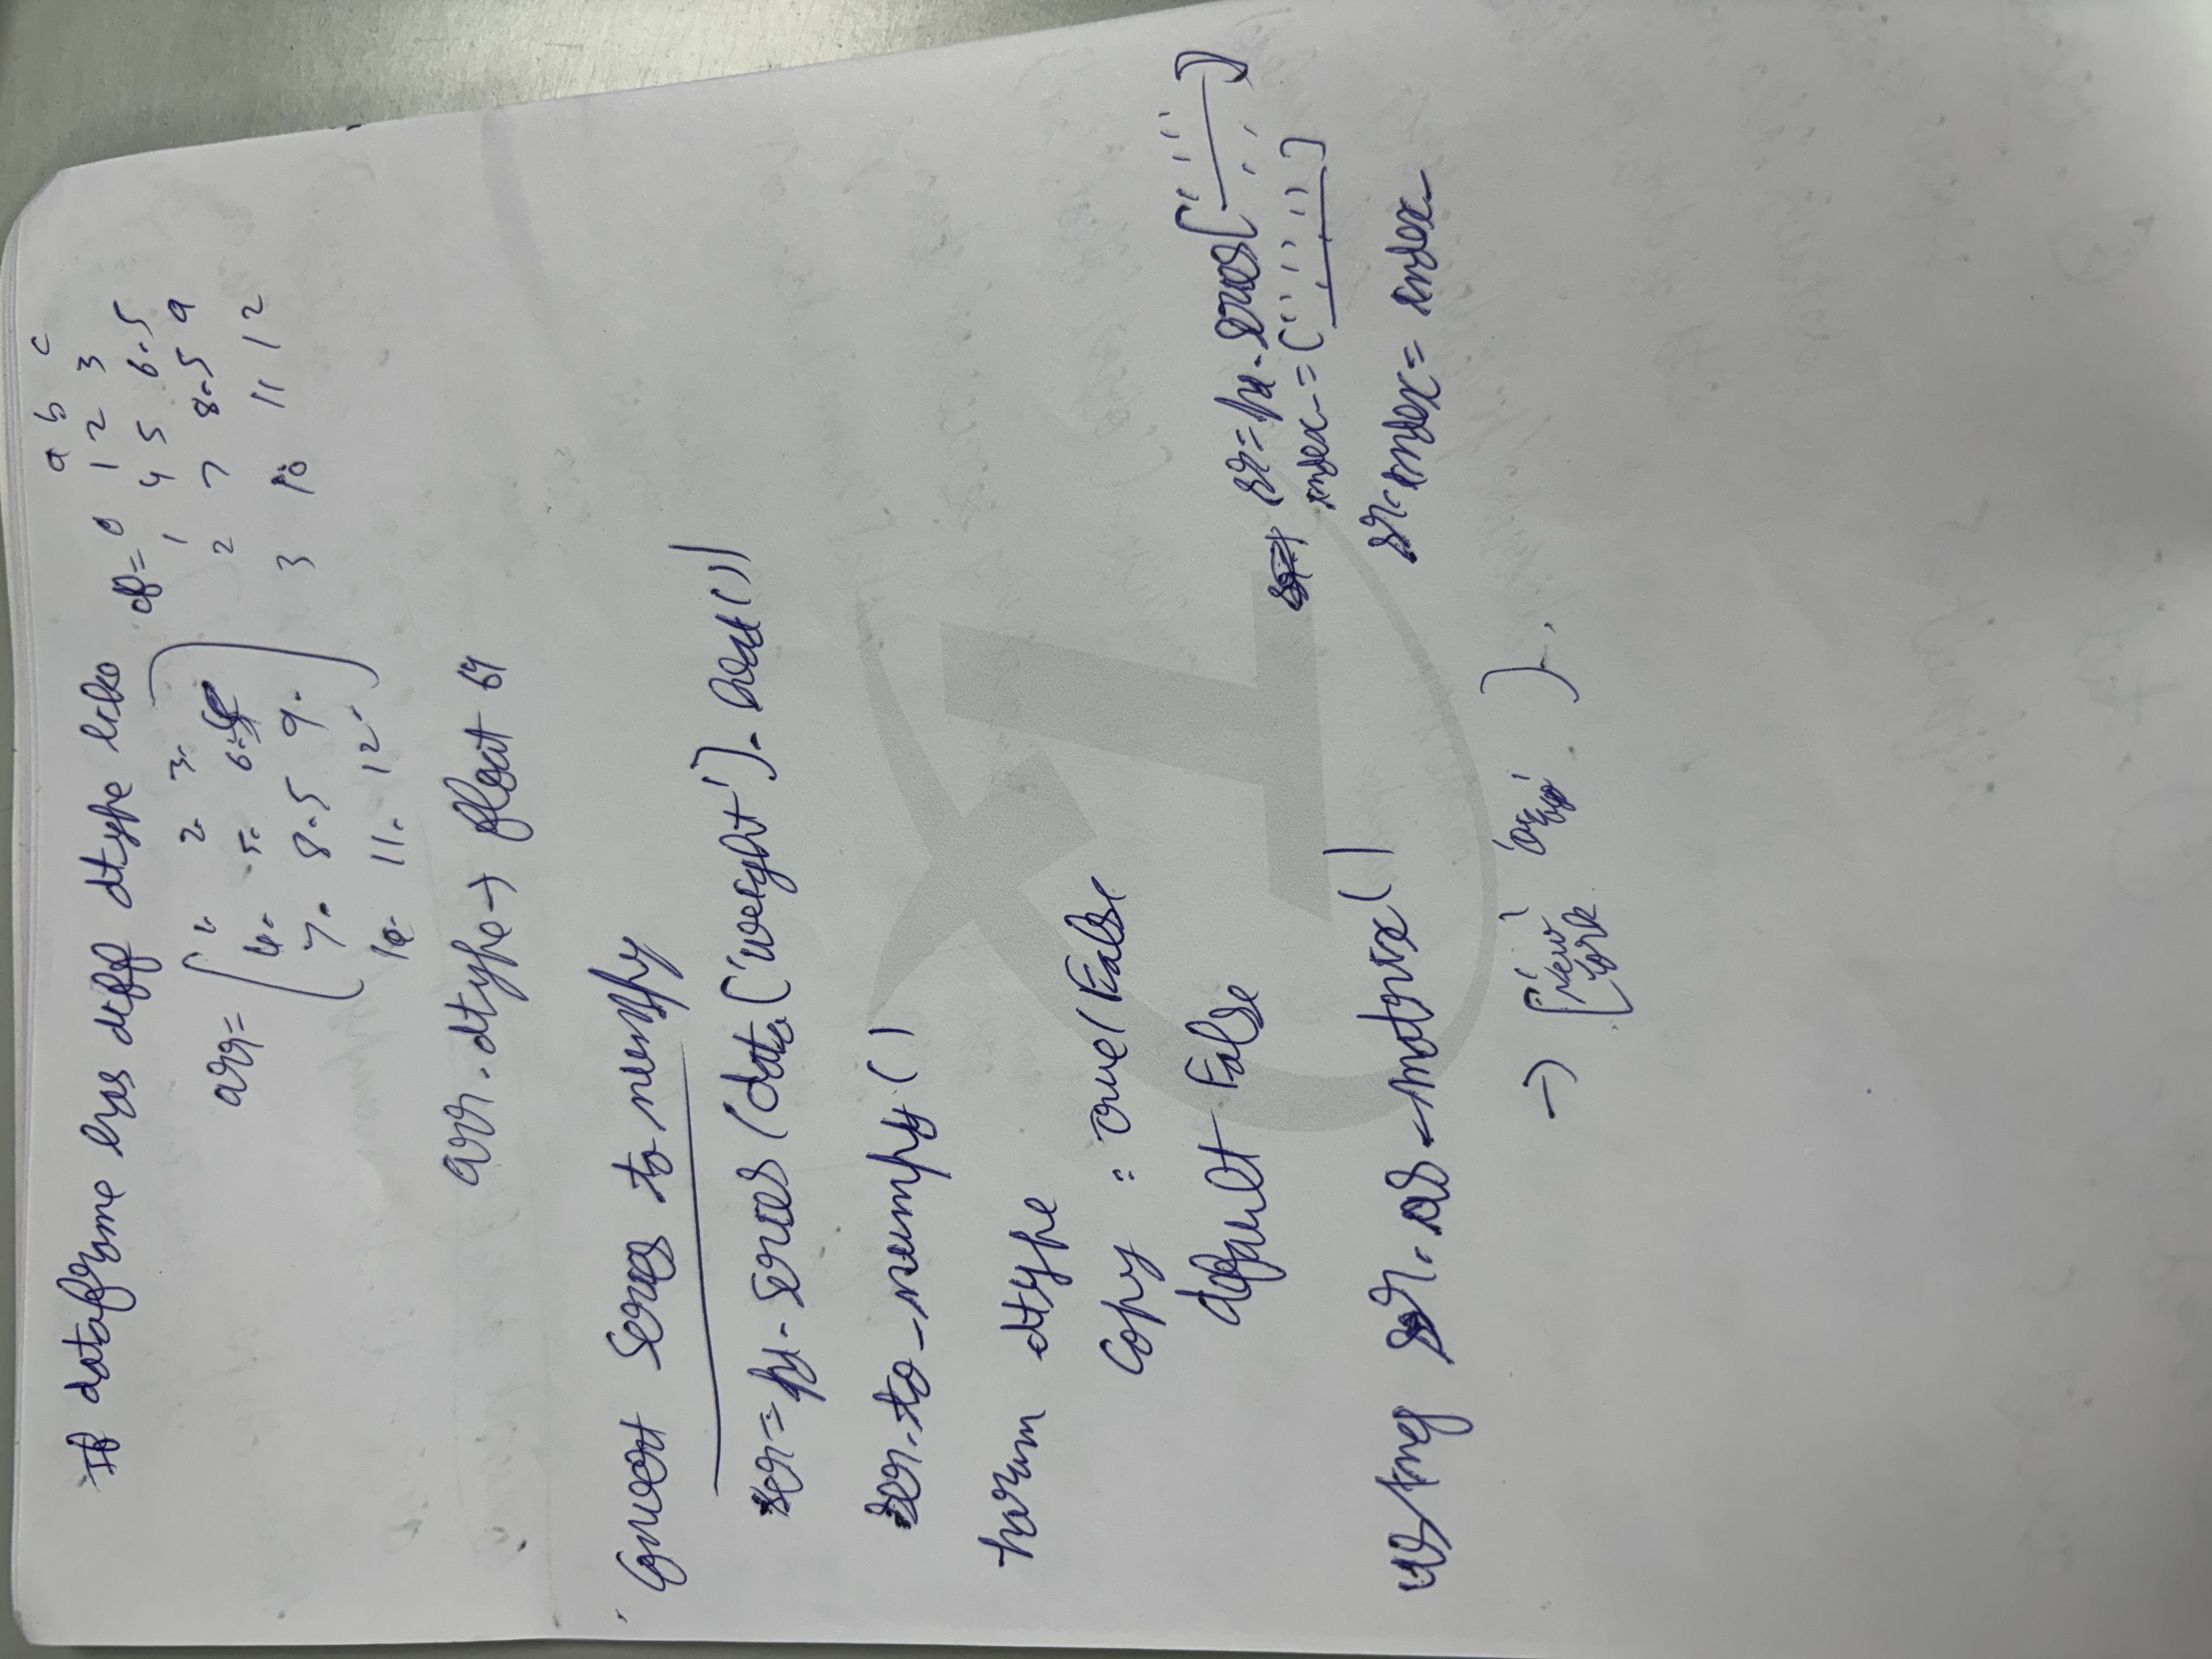 If dataframe has diff dtype like
a b c
df= 0 1 2 3
1 4 5 6.5
2 7 8.5 9
3 10 11 12
arr= [ 1. 2. 3.
4. 5. 6.5
7. 8.5 9.
10. 11. 12. ]
arr.dtype → float 64
Convert Series to numpy
ser= pd.series (data['weight'].head())
ser.to_numpy()
param dtype
Copy : True/False
default False
using ser.as_matrix()
→ ['New York' ' ' ].
sr= pd.series[' ' ' ' , , ]
index_ = [' ' , ' ' , ' ']
sr.index = index_